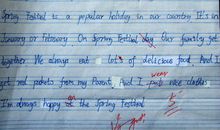 Spring Festival is a popular holiday in our country. It's in
January or February. On Spring Festival day. Our family get
together. We always eat lots of delicious food. And I
get red pockets from my Parent. And I wear nice clothes.
I'm always happy the Spring Festival.